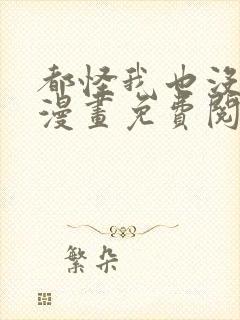 都怪我也没
漫畫免費閱
繁朵